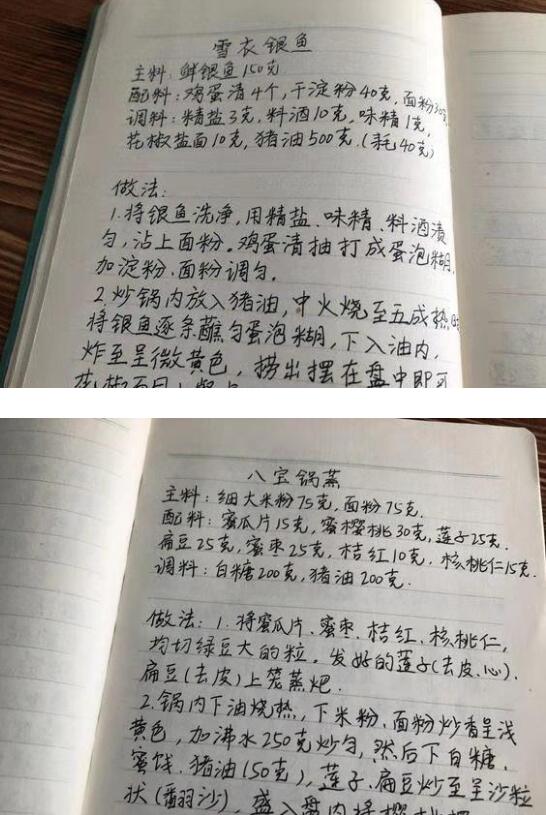 雪衣银鱼
主料:鲜银鱼150克
配料:鸡蛋清4个,干淀粉40克,面粉30克
调料:精盐3克,料酒10克,味精1克,
花椒盐面10克,猪油500克.(耗40克)
做法:
1.将银鱼洗净,用精盐、味精、料酒渍
匀,沾上面粉。鸡蛋清抽打成蛋泡糊,
加淀粉、面粉调匀.
2.炒锅内放入猪油,中火烧至五成热时
将银鱼逐条蘸匀蛋泡糊,下入油内,
炸至呈微黄色,捞出摆在盘中即可
八宝锅蒸
主料:细大米粉75克,面粉75克.
配料:蜜瓜片15克,蜜樱桃30克,莲子25克.
扁豆25克,蜜枣25克,桔红10克,核桃仁15克.
调料:白糖200克,猪油200克.
做法:1.将蜜瓜片、蜜枣、桔红、核桃仁,
均切绿豆大的粒。发好的莲子(去皮、心)、
扁豆(去皮)上笼蒸𤆵.
2.锅内下油烧热,下米粉、面粉炒香呈浅
黄色,加沸水250克炒匀,然后下白糖、
蜜饯、猪油(50克),莲子、扁豆炒至呈沙粒
状(翻沙),盛入盘内将樱桃摆